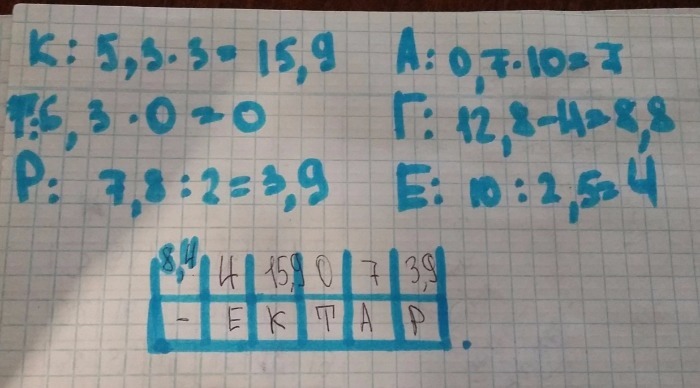 К: 5,3·3=15,9 А: 0,7·10=7
Т:6,3·0=0 Г: 12,8-4=8,8
Р: 7,8:2=3,9 Е: 10:2,5=4
8,4 4 15,9 0 7 3,9
- Е К Т А Р .